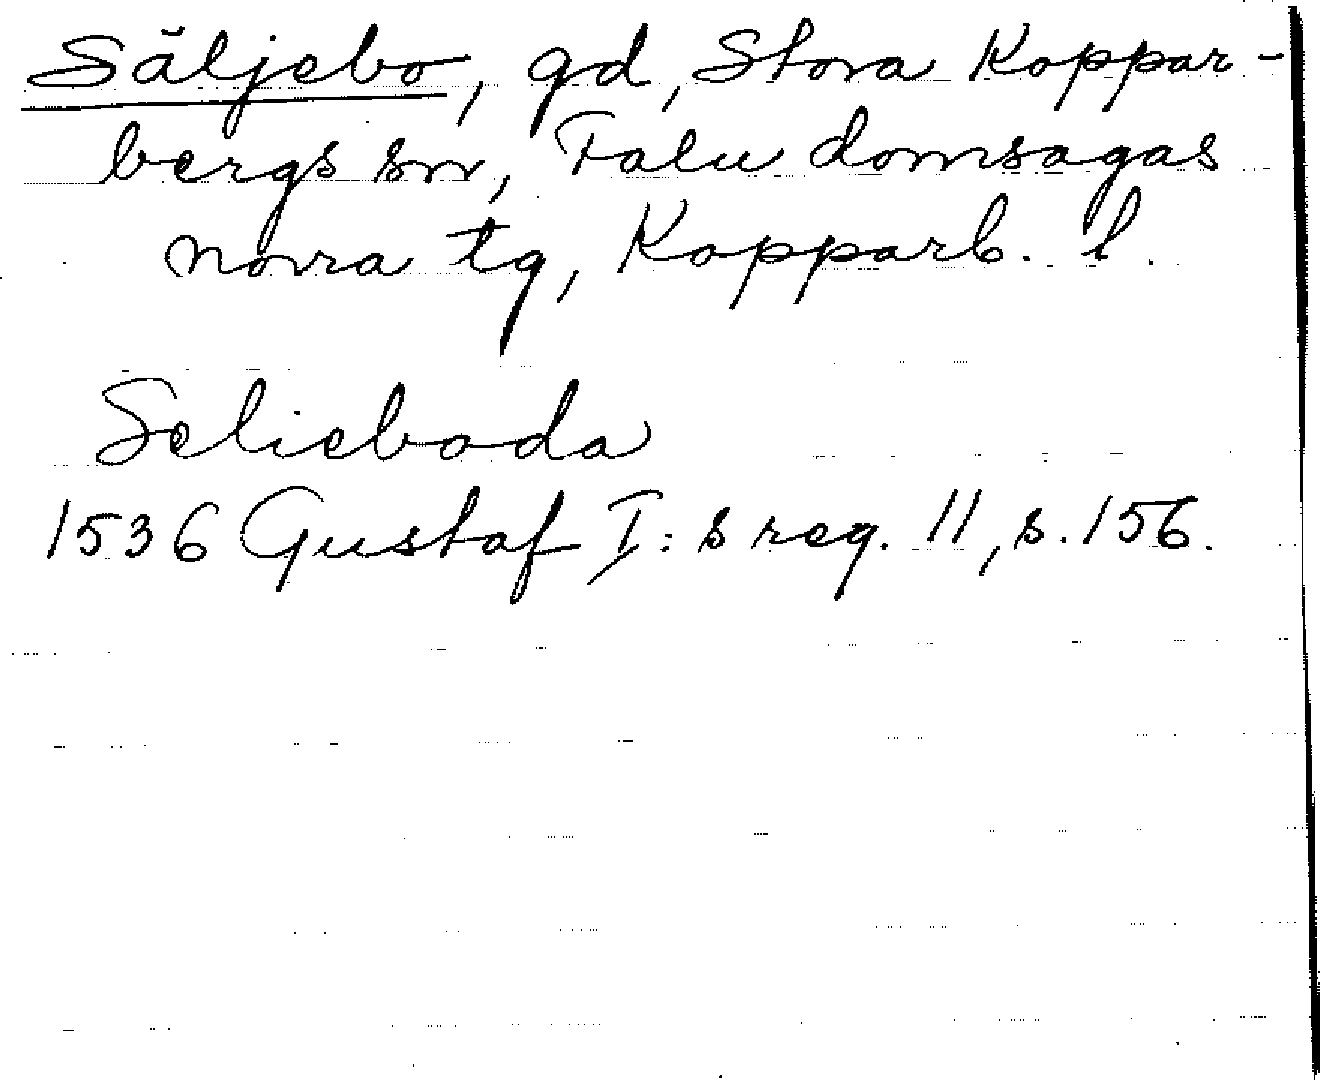 Säljebo, gd, Stora Koppar-
bergs sn, Falu domsagas
norra tg, Kopparb. l.
Selieboda
1536 Gustaf I:s reg. 11, s. 156.